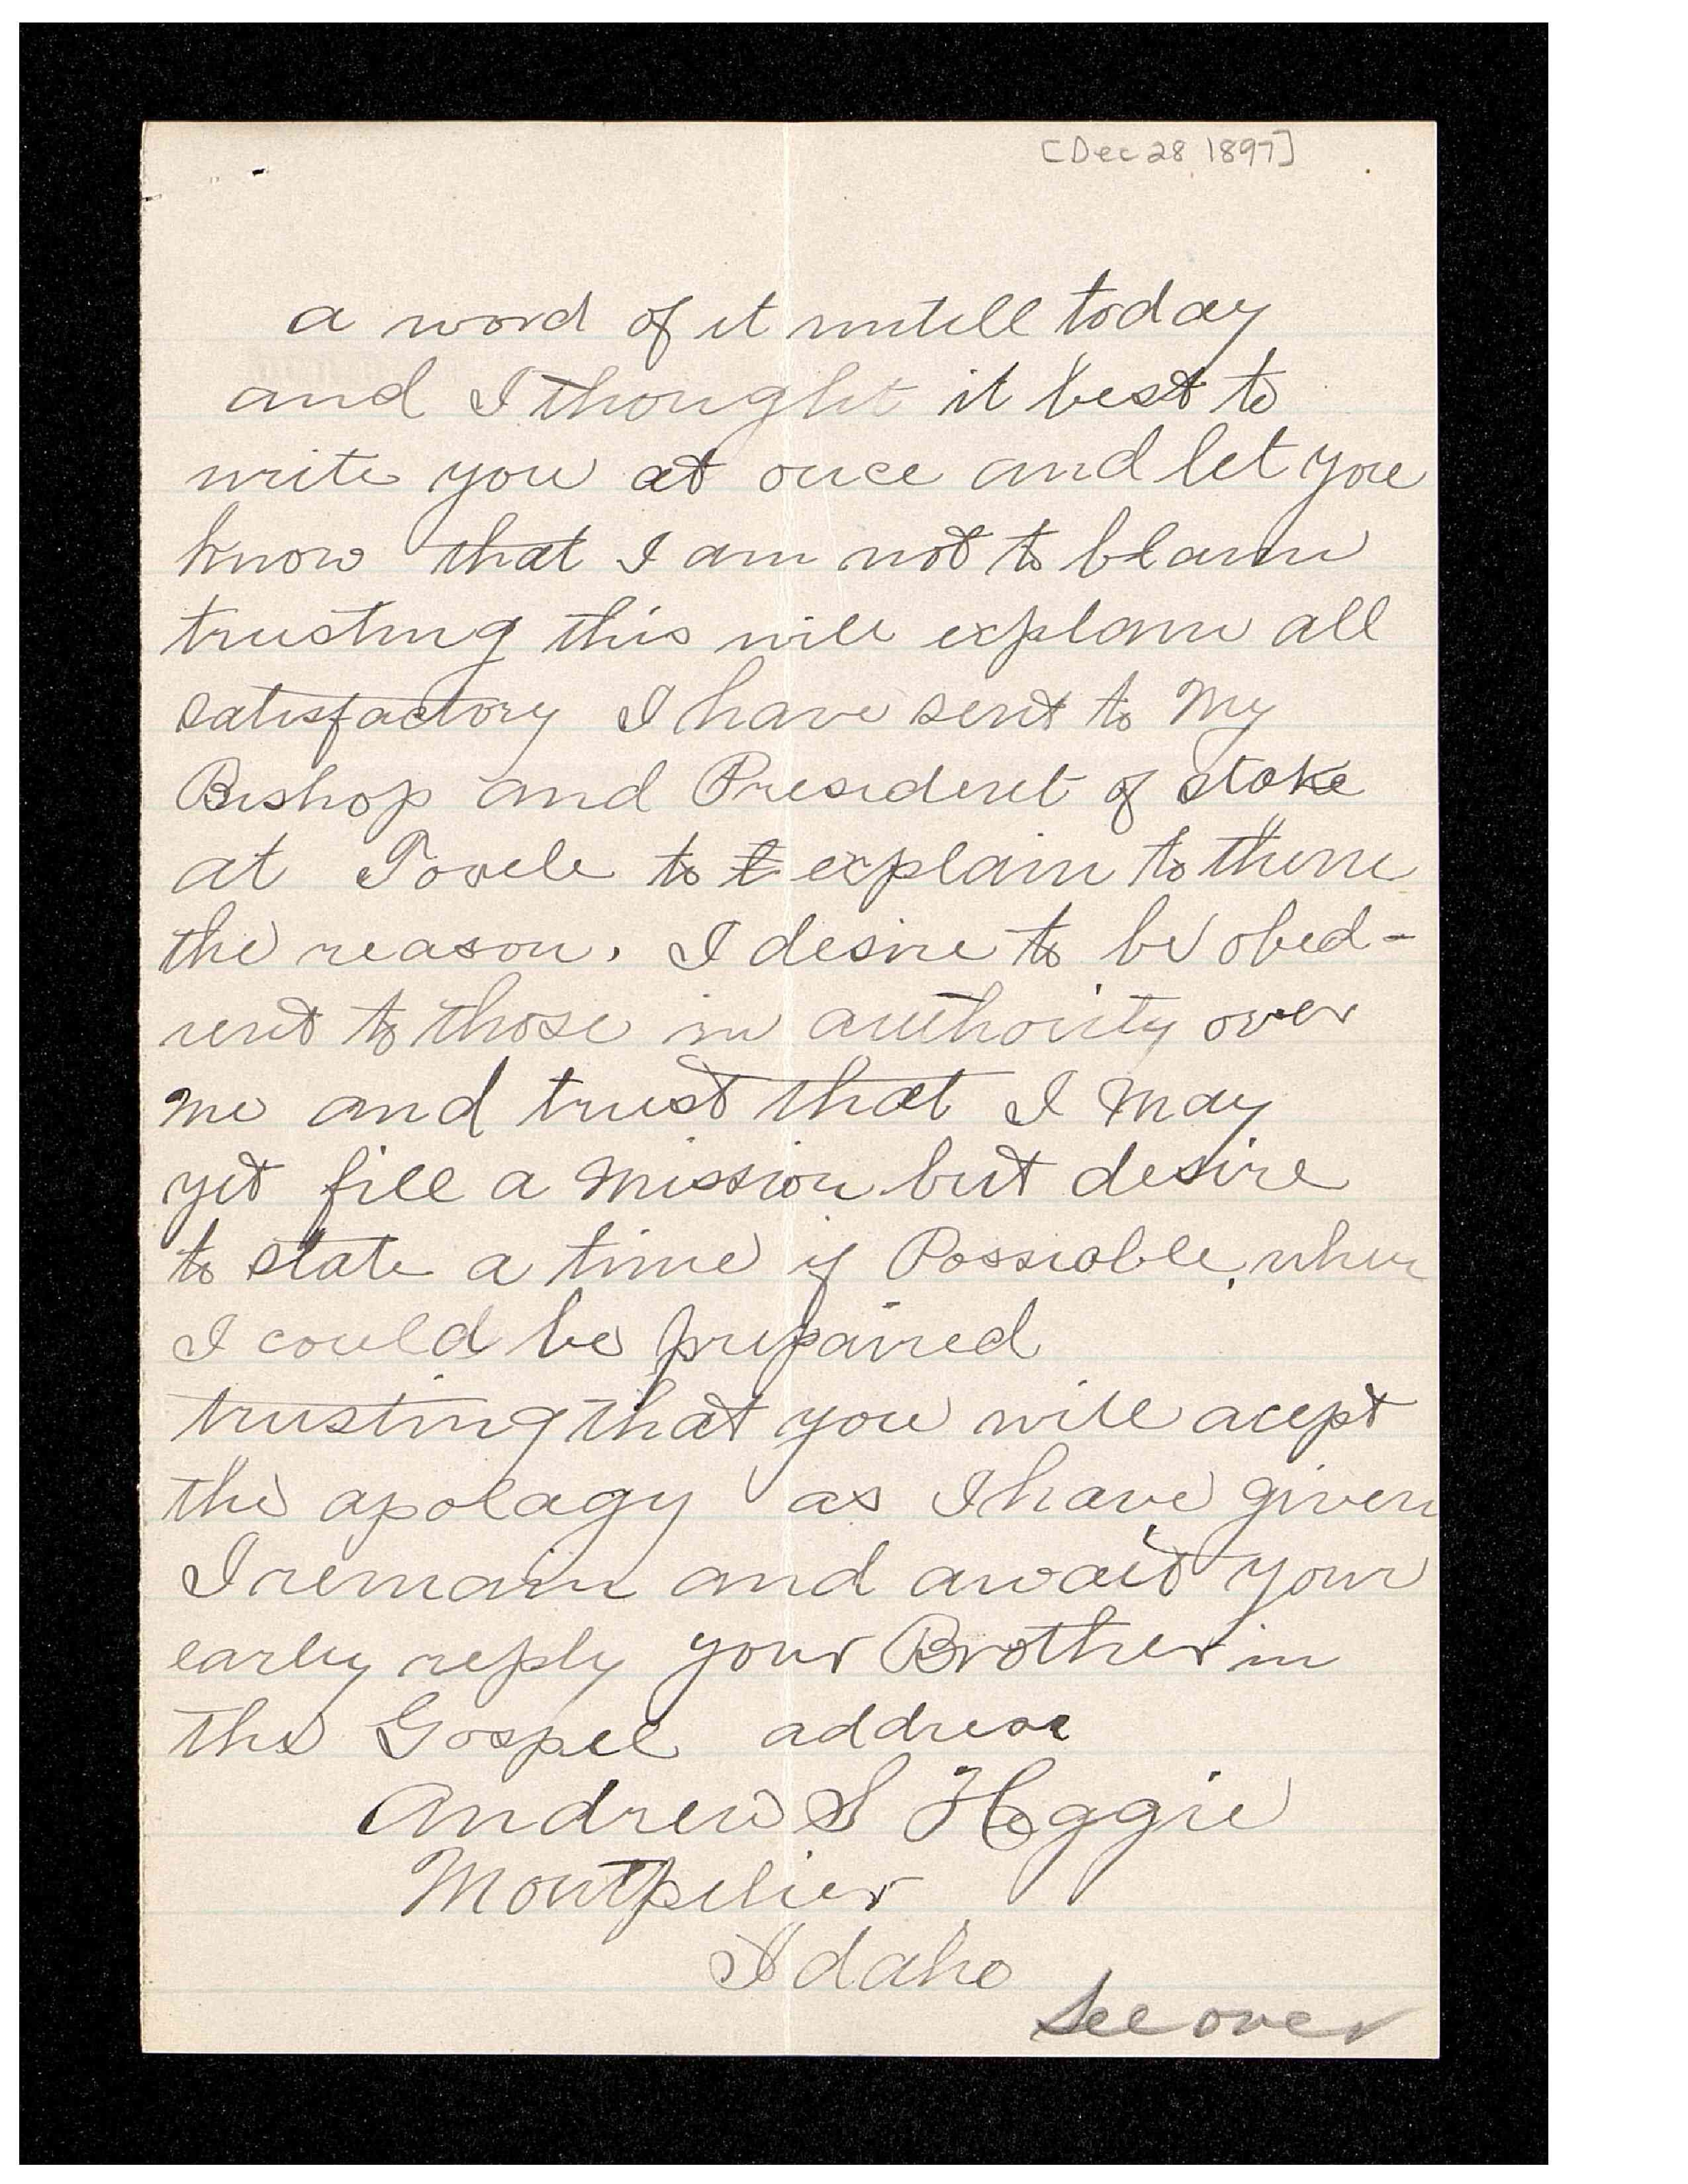 [Dec 28 1897]
a word of it untill today
and I thought it best to
write you at once and let you
know that I am not to blame
trusting this will explain all
satisfactory I have sent to My
Bishop and President of stake
at Tooele to t explain to them
the reason. I desire to be obed-
ient to those in authority over
me and trust that I may
yet fill a Mission but desire
to state a time if Possiable, when
I could be prepaired
trusting that you will acept
the apolagy as I have given
I remain and await your
early reply your Brother in
the Gospel address
Andrew S Heggie
Montpelier
Idaho
See over